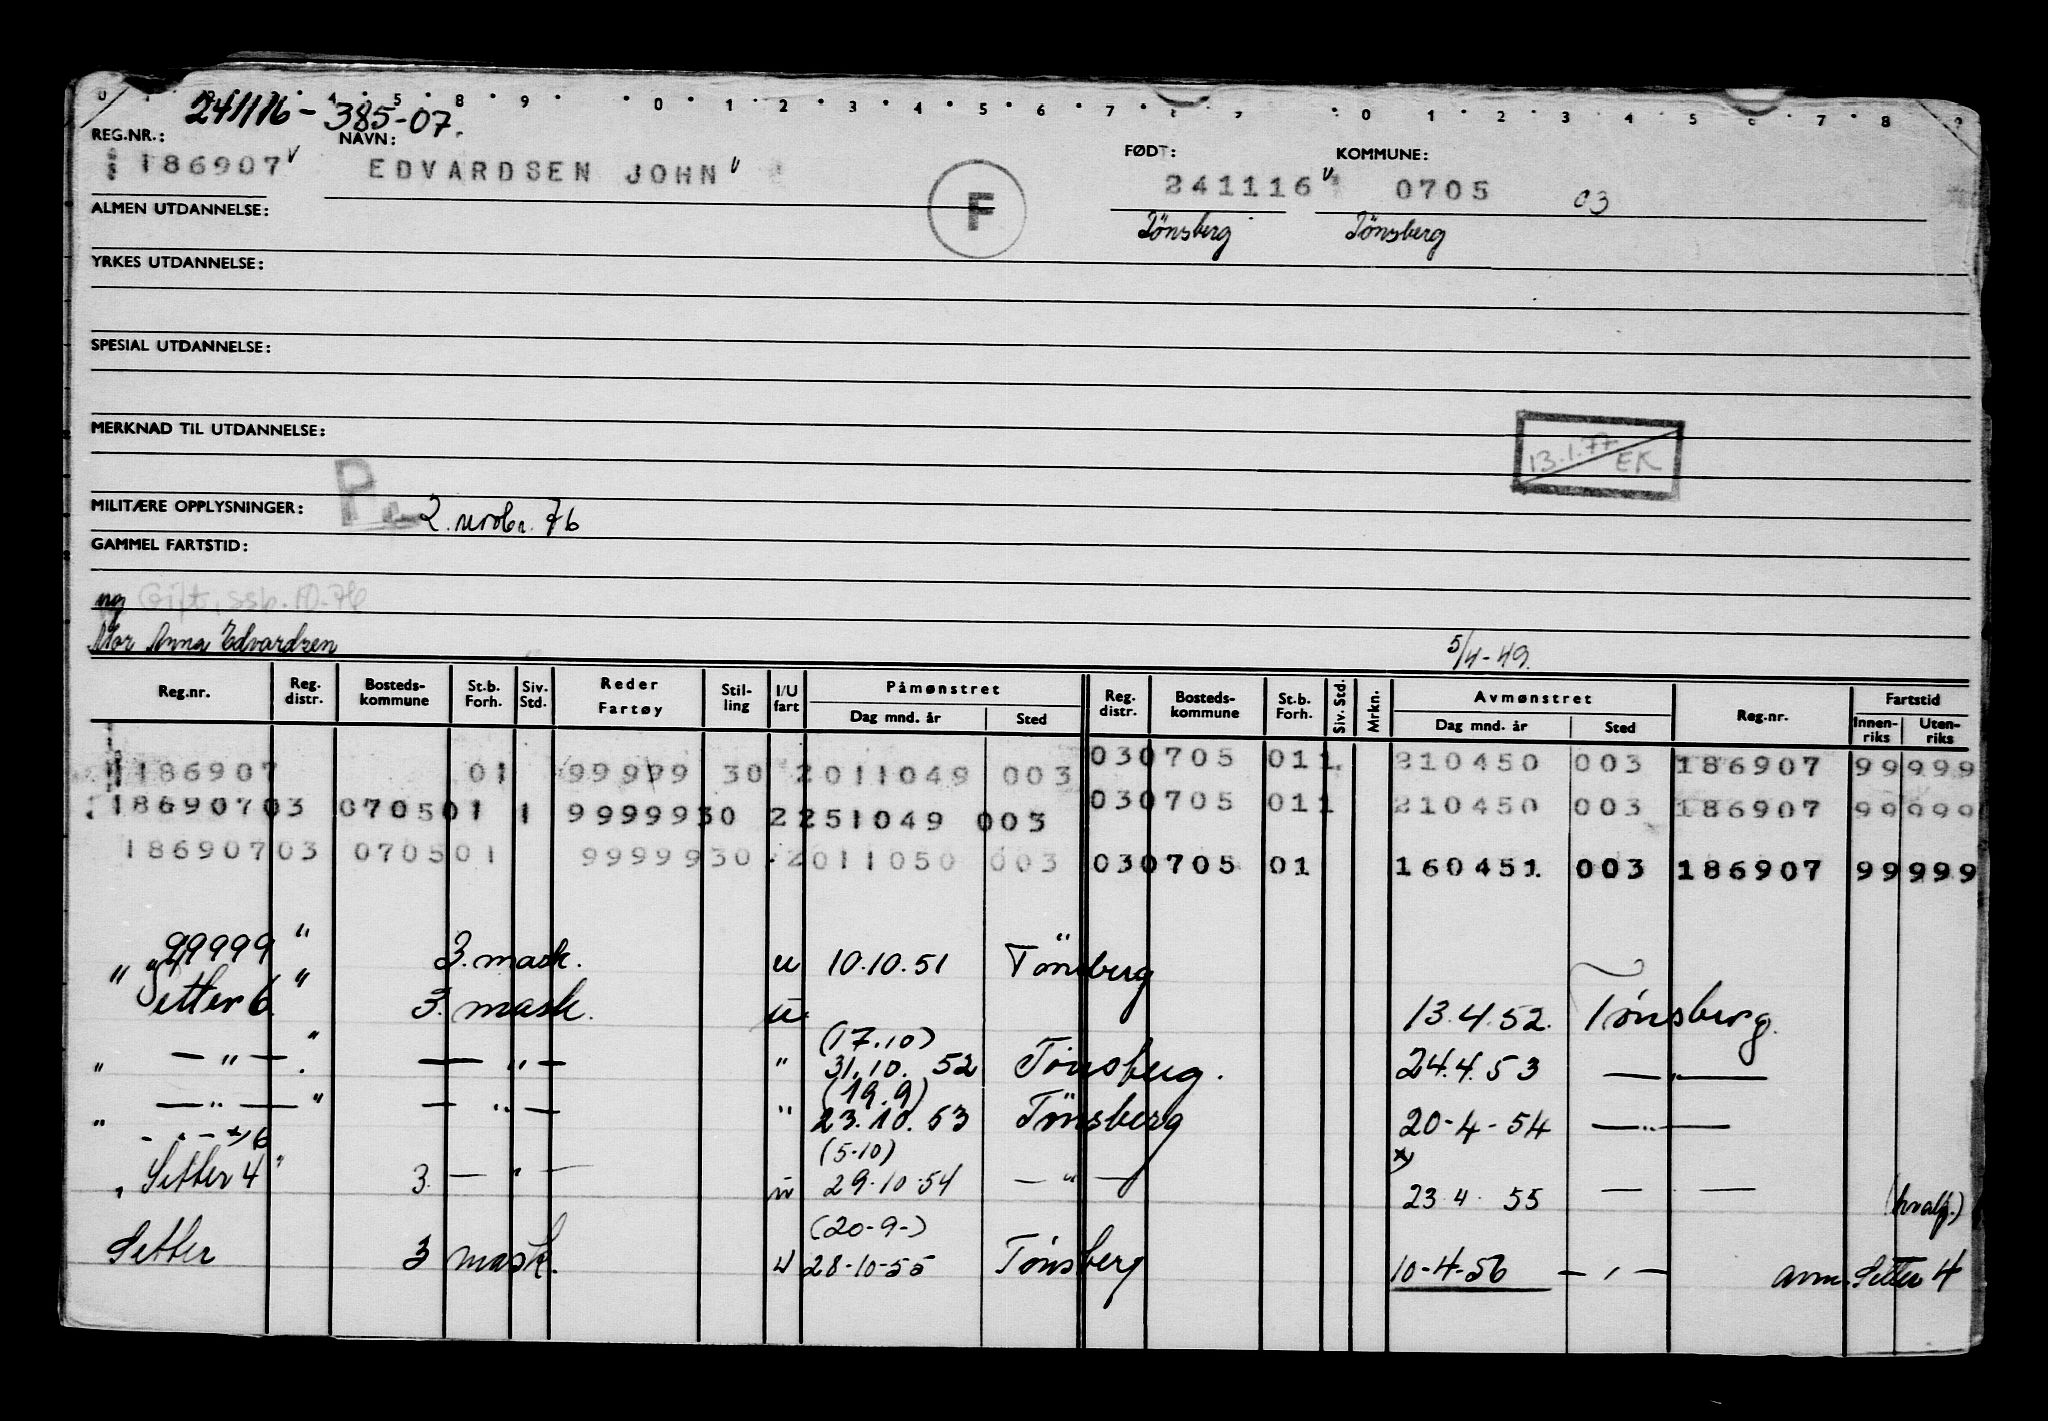 241116-385-07.
REG.NR.: NAVN: FØDT: KOMMUNE:
186907 EDVARDSEN JOHN F 241116 0705 03
ALMEN UTDANNELSE: Tönsberg Tönsberg
YRKES UTDANNELSE:
SPESIAL UTDANNELSE:
MERKNAD TIL UTDANNELSE:
13.1.77 EK
MILITÆRE OPPLYSNINGER: P 2. novbr. 76
GAMMEL FARTSTID:
ug Gift, ssb. 10.76
Mor Anna Edvardsen 5/4-49.
Reg.nr. Reg. distr. Bosteds-kommune St.b. Forh. Siv. Std. Reder Fartøy Stil-ling I/U fart Påmønstret Dag mnd. år Sted Reg. distr. Bosteds-kommune St.b. Forh. Siv. Std. Mrkn. Avmønstret Dag mnd. år Sted Reg.nr. Fartstid Innen-riks Uten-riks
186907 01 99999 30 2011049 003 030705 011 210450 003 186907 99999
18690703 070501 1 9999930 2251049 003 030705 011 210450 003 186907 99999
18690703 070501 9999930 2011050 003 030705 01 160451 003 186907 99999
99999 " 3. mask. u 10.10.51 Tönsberg
" Setter 6 " 3. mask. u 13.4.52. Tønsberg.
(17.10)
" — " — " — " — " 31.10. 52 Tönsberg. 24.4.53 — " —
(19.9)
" — " — " — " — " 23.10.53 Tönsberg 20-4-54 — " —
- " - x) 6 (5-10) x)
" Setter 4 " 3. — " — u 29.10.54 — " — 23 4. 55 — — (hvalf.)
(20-9-)
Setter 3 mask. u 28-10-55 Tønsberg 10-4-56 — " — avm. Setter 4